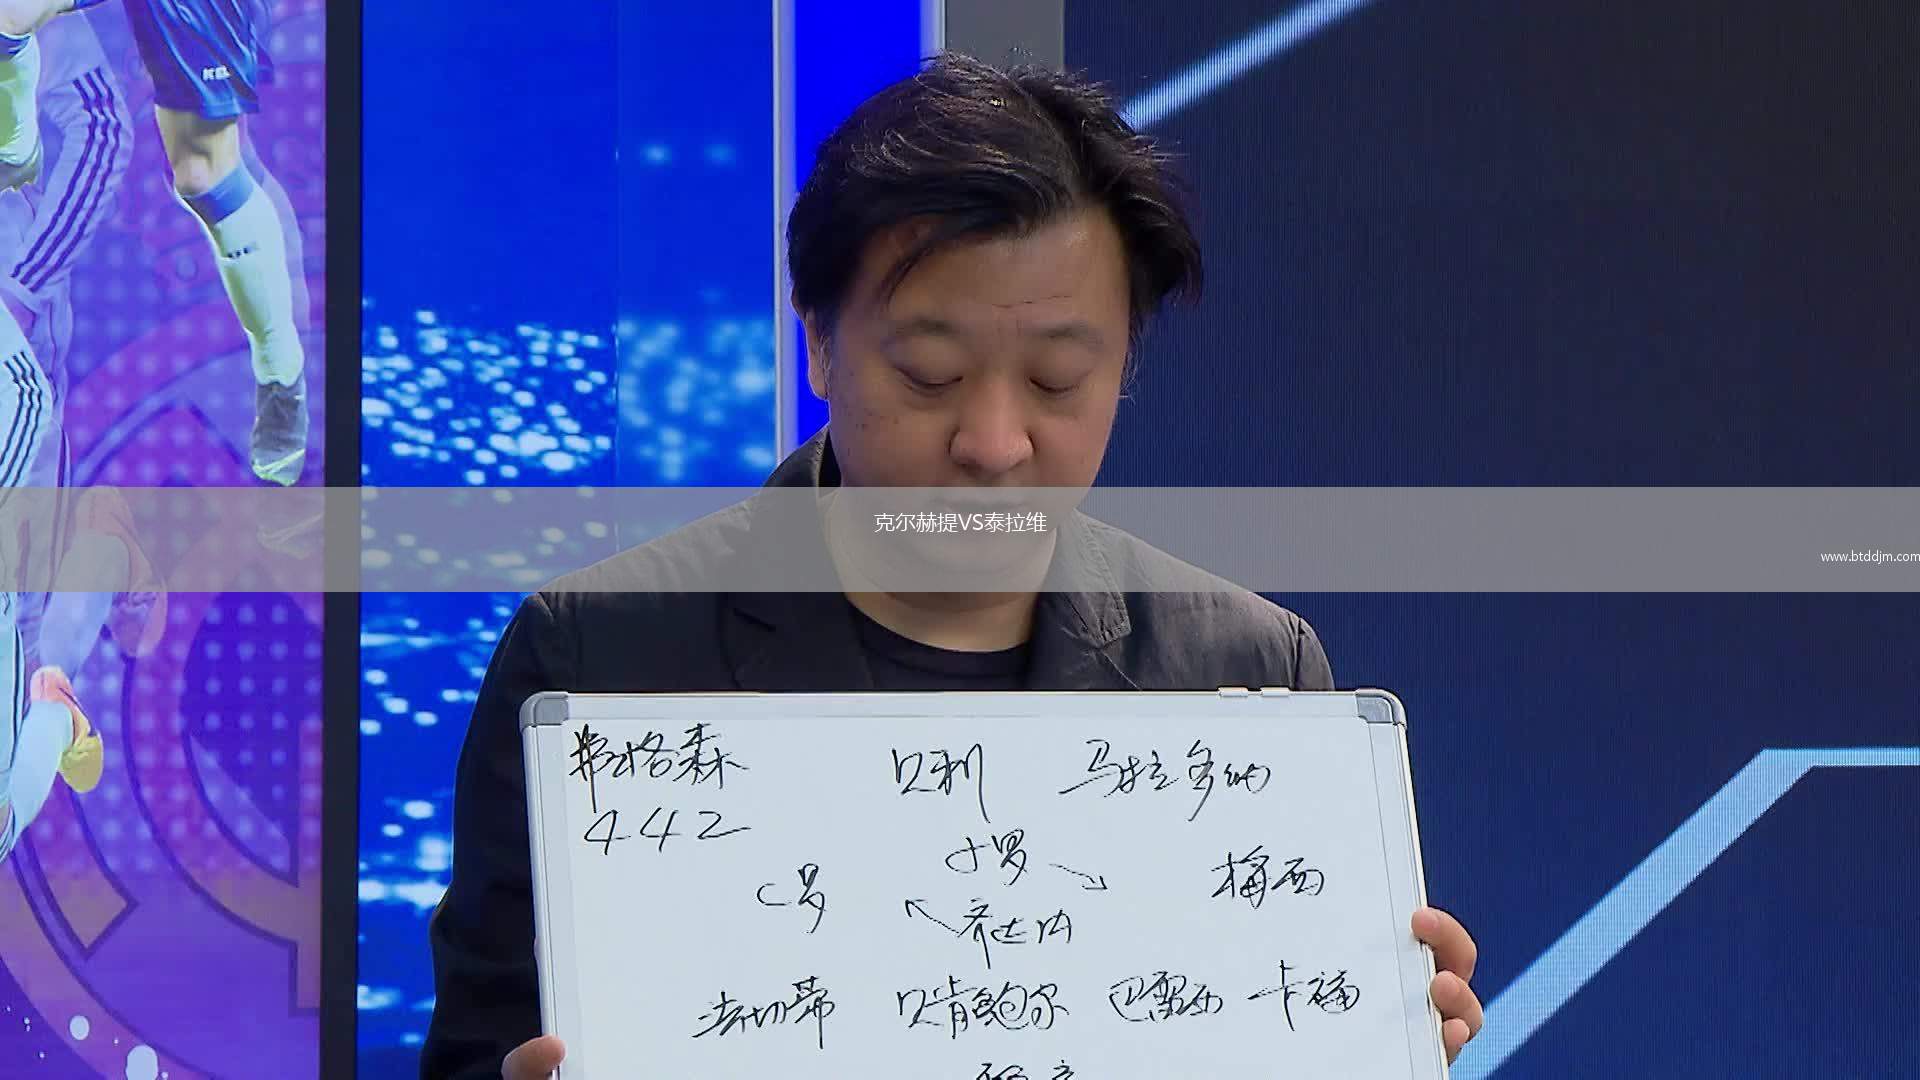 KEL
克尔赫提VS泰拉维
www.btddjm.com
弗格森 贝利 马拉多纳
442
小罗
C罗 梅西
齐达内
法切蒂 贝肯鲍尔 巴雷西 卡福